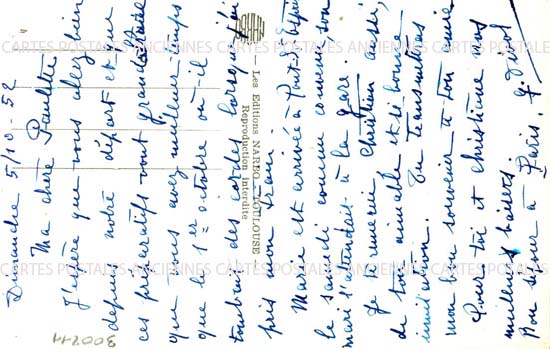 Dimanche 5/10-52
Ma chère Paulette
J'espère que vous allez bien
depuis notre départ et que
ces préparatifs vont grand train
que vous avez meilleur temps
que le 1er octobre où il
tombait des cordes lorsque j'ai
pris mon train.
Marie est arrivée à Pont-St-Esprit
le samedi comme convenu, son
mari l'attendait à la gare.
Je te remercie Christian aussi,
de ton aimable et si bonne
invitation. Tu transmettras
mon bon souvenir à ton
Pour toi et Christiane mes
meilleurs baisers
Bon séjour à Paris.
— Les Editions NARBO - TOULOUSE —
Reproduction Interdite
300211
CARTES POSTALES ANCIENNES CARTES POSTALES ANCIENNES CARTES POSTALES ANCIENNES